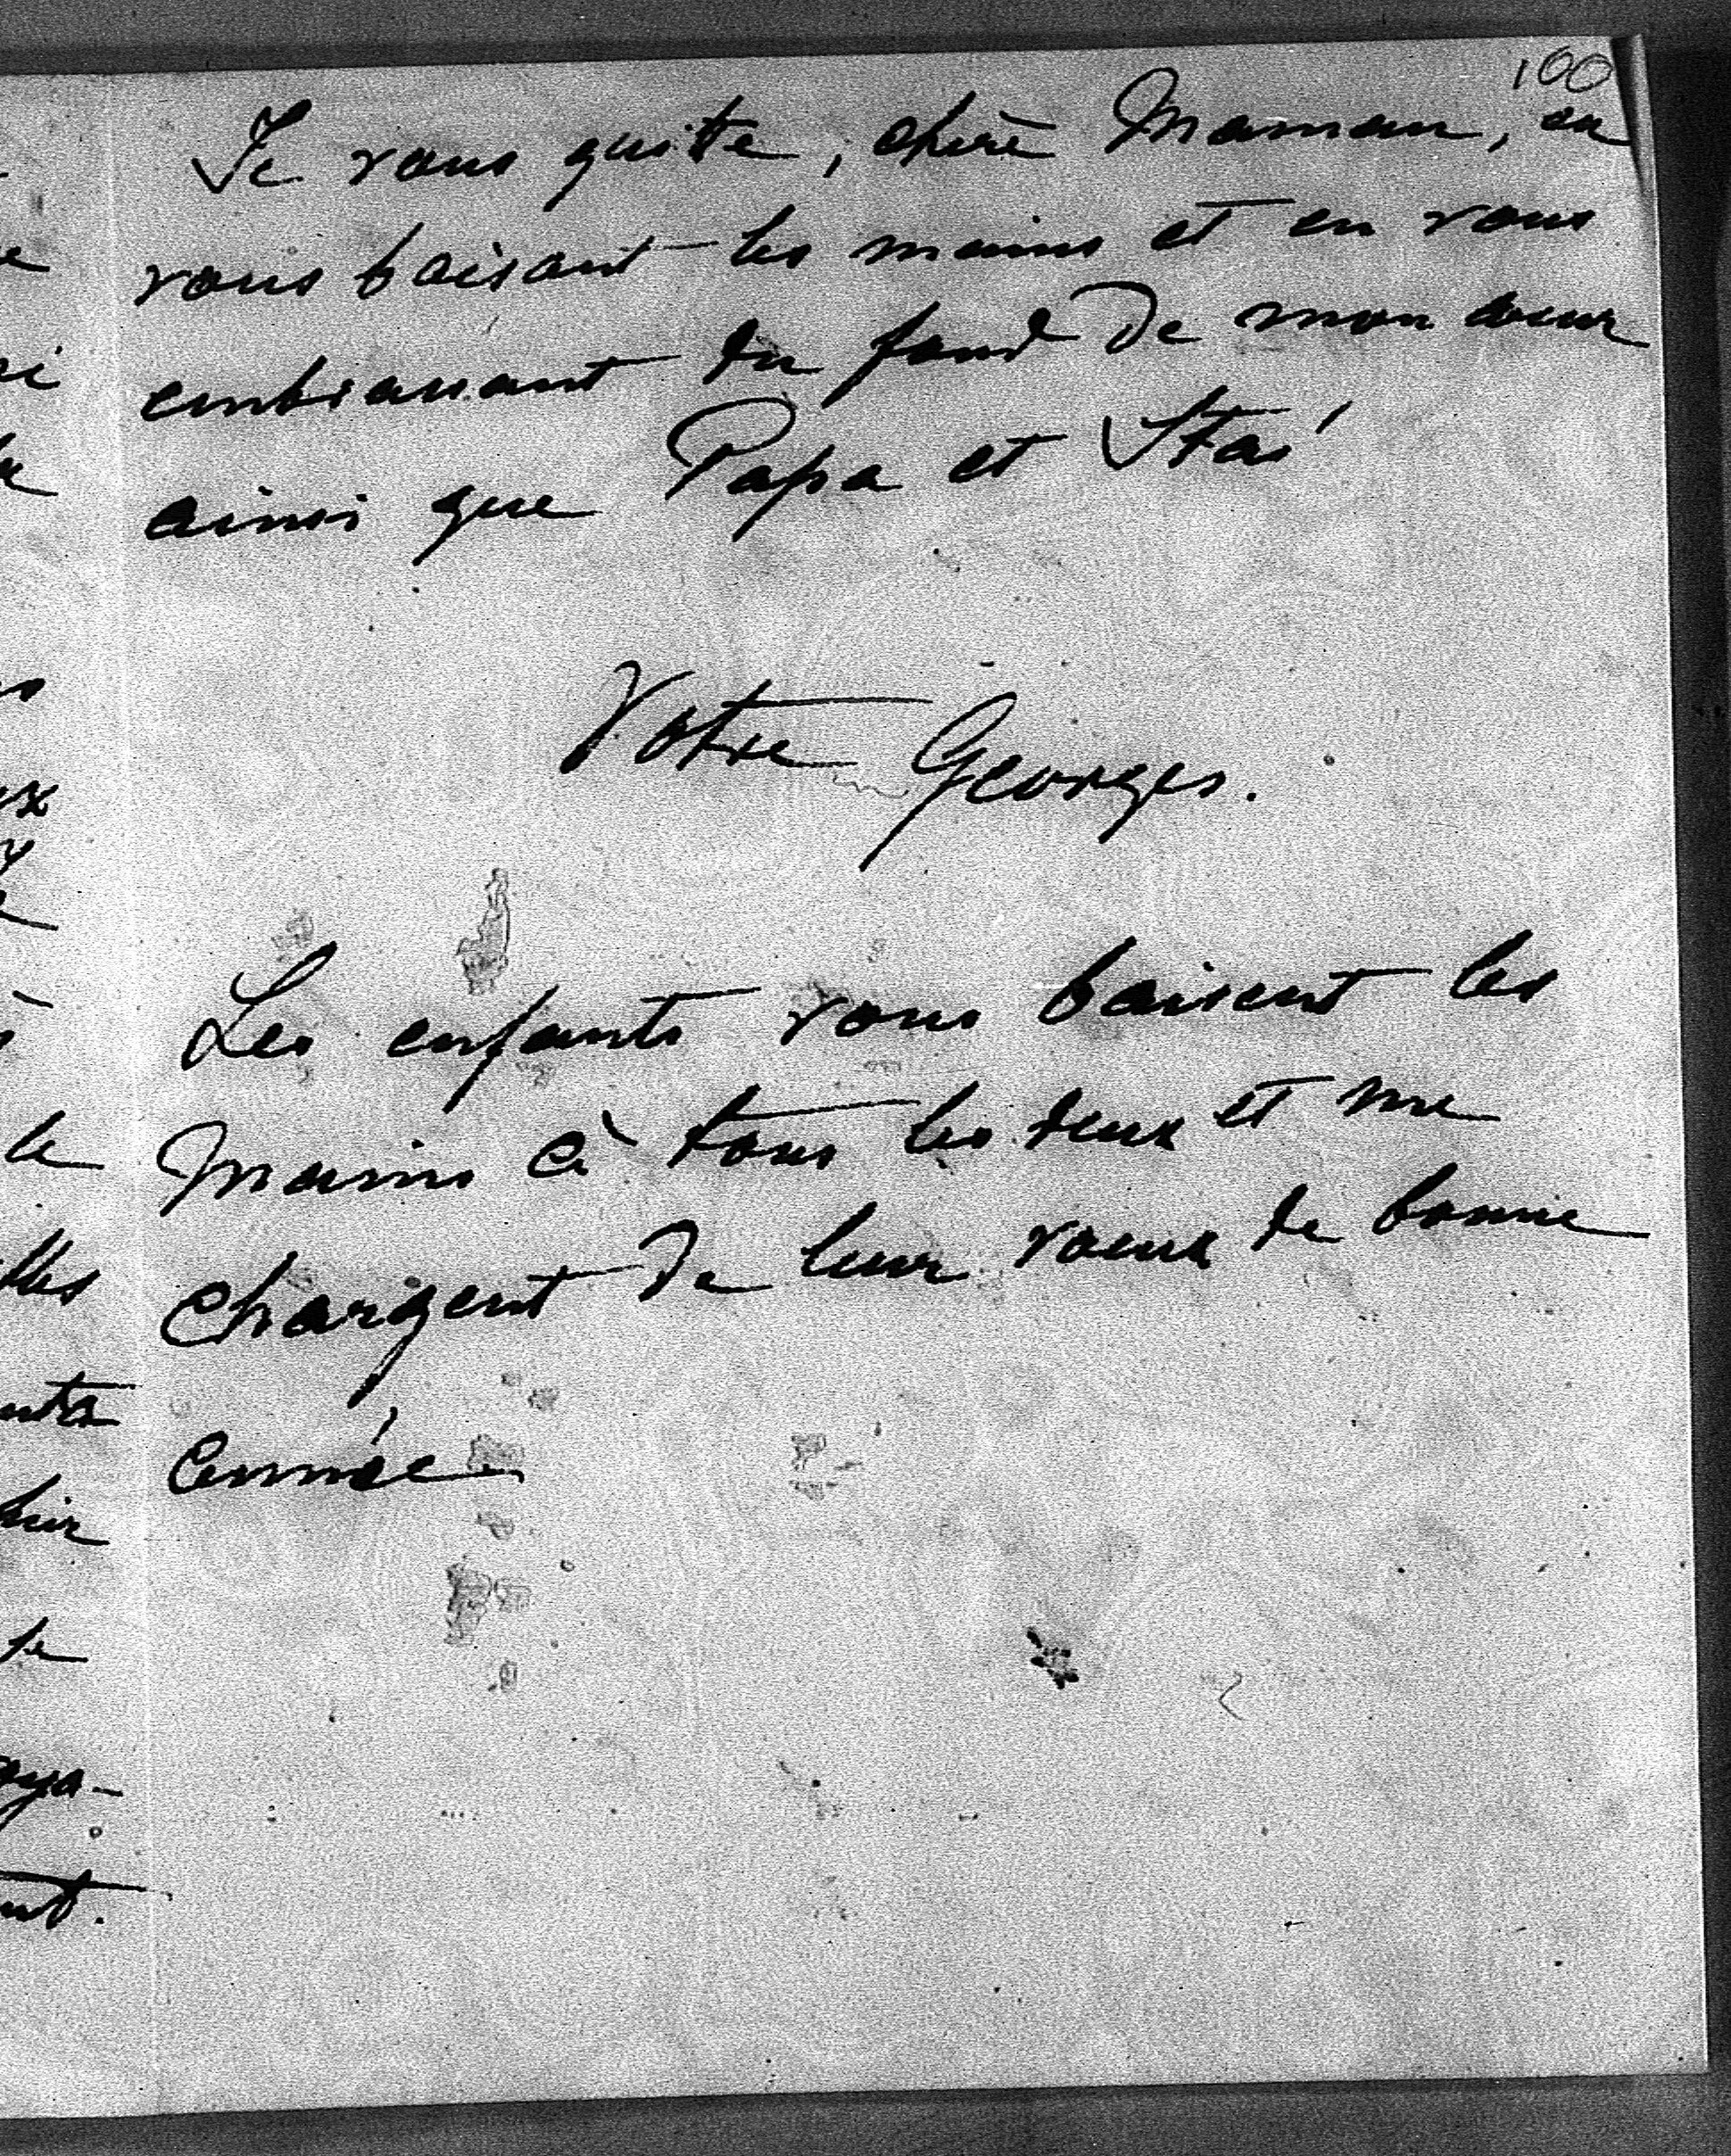 100
Je vous quitte, chère Maman, en
vous baisant les mains et en vous
embrassant du fond de mon coeur
ainsi que Papa et Stas'
Votre Georges.
Les enfants vous baisent les
mains à tous les deux et me
chargent de leur voeux de bonne
année